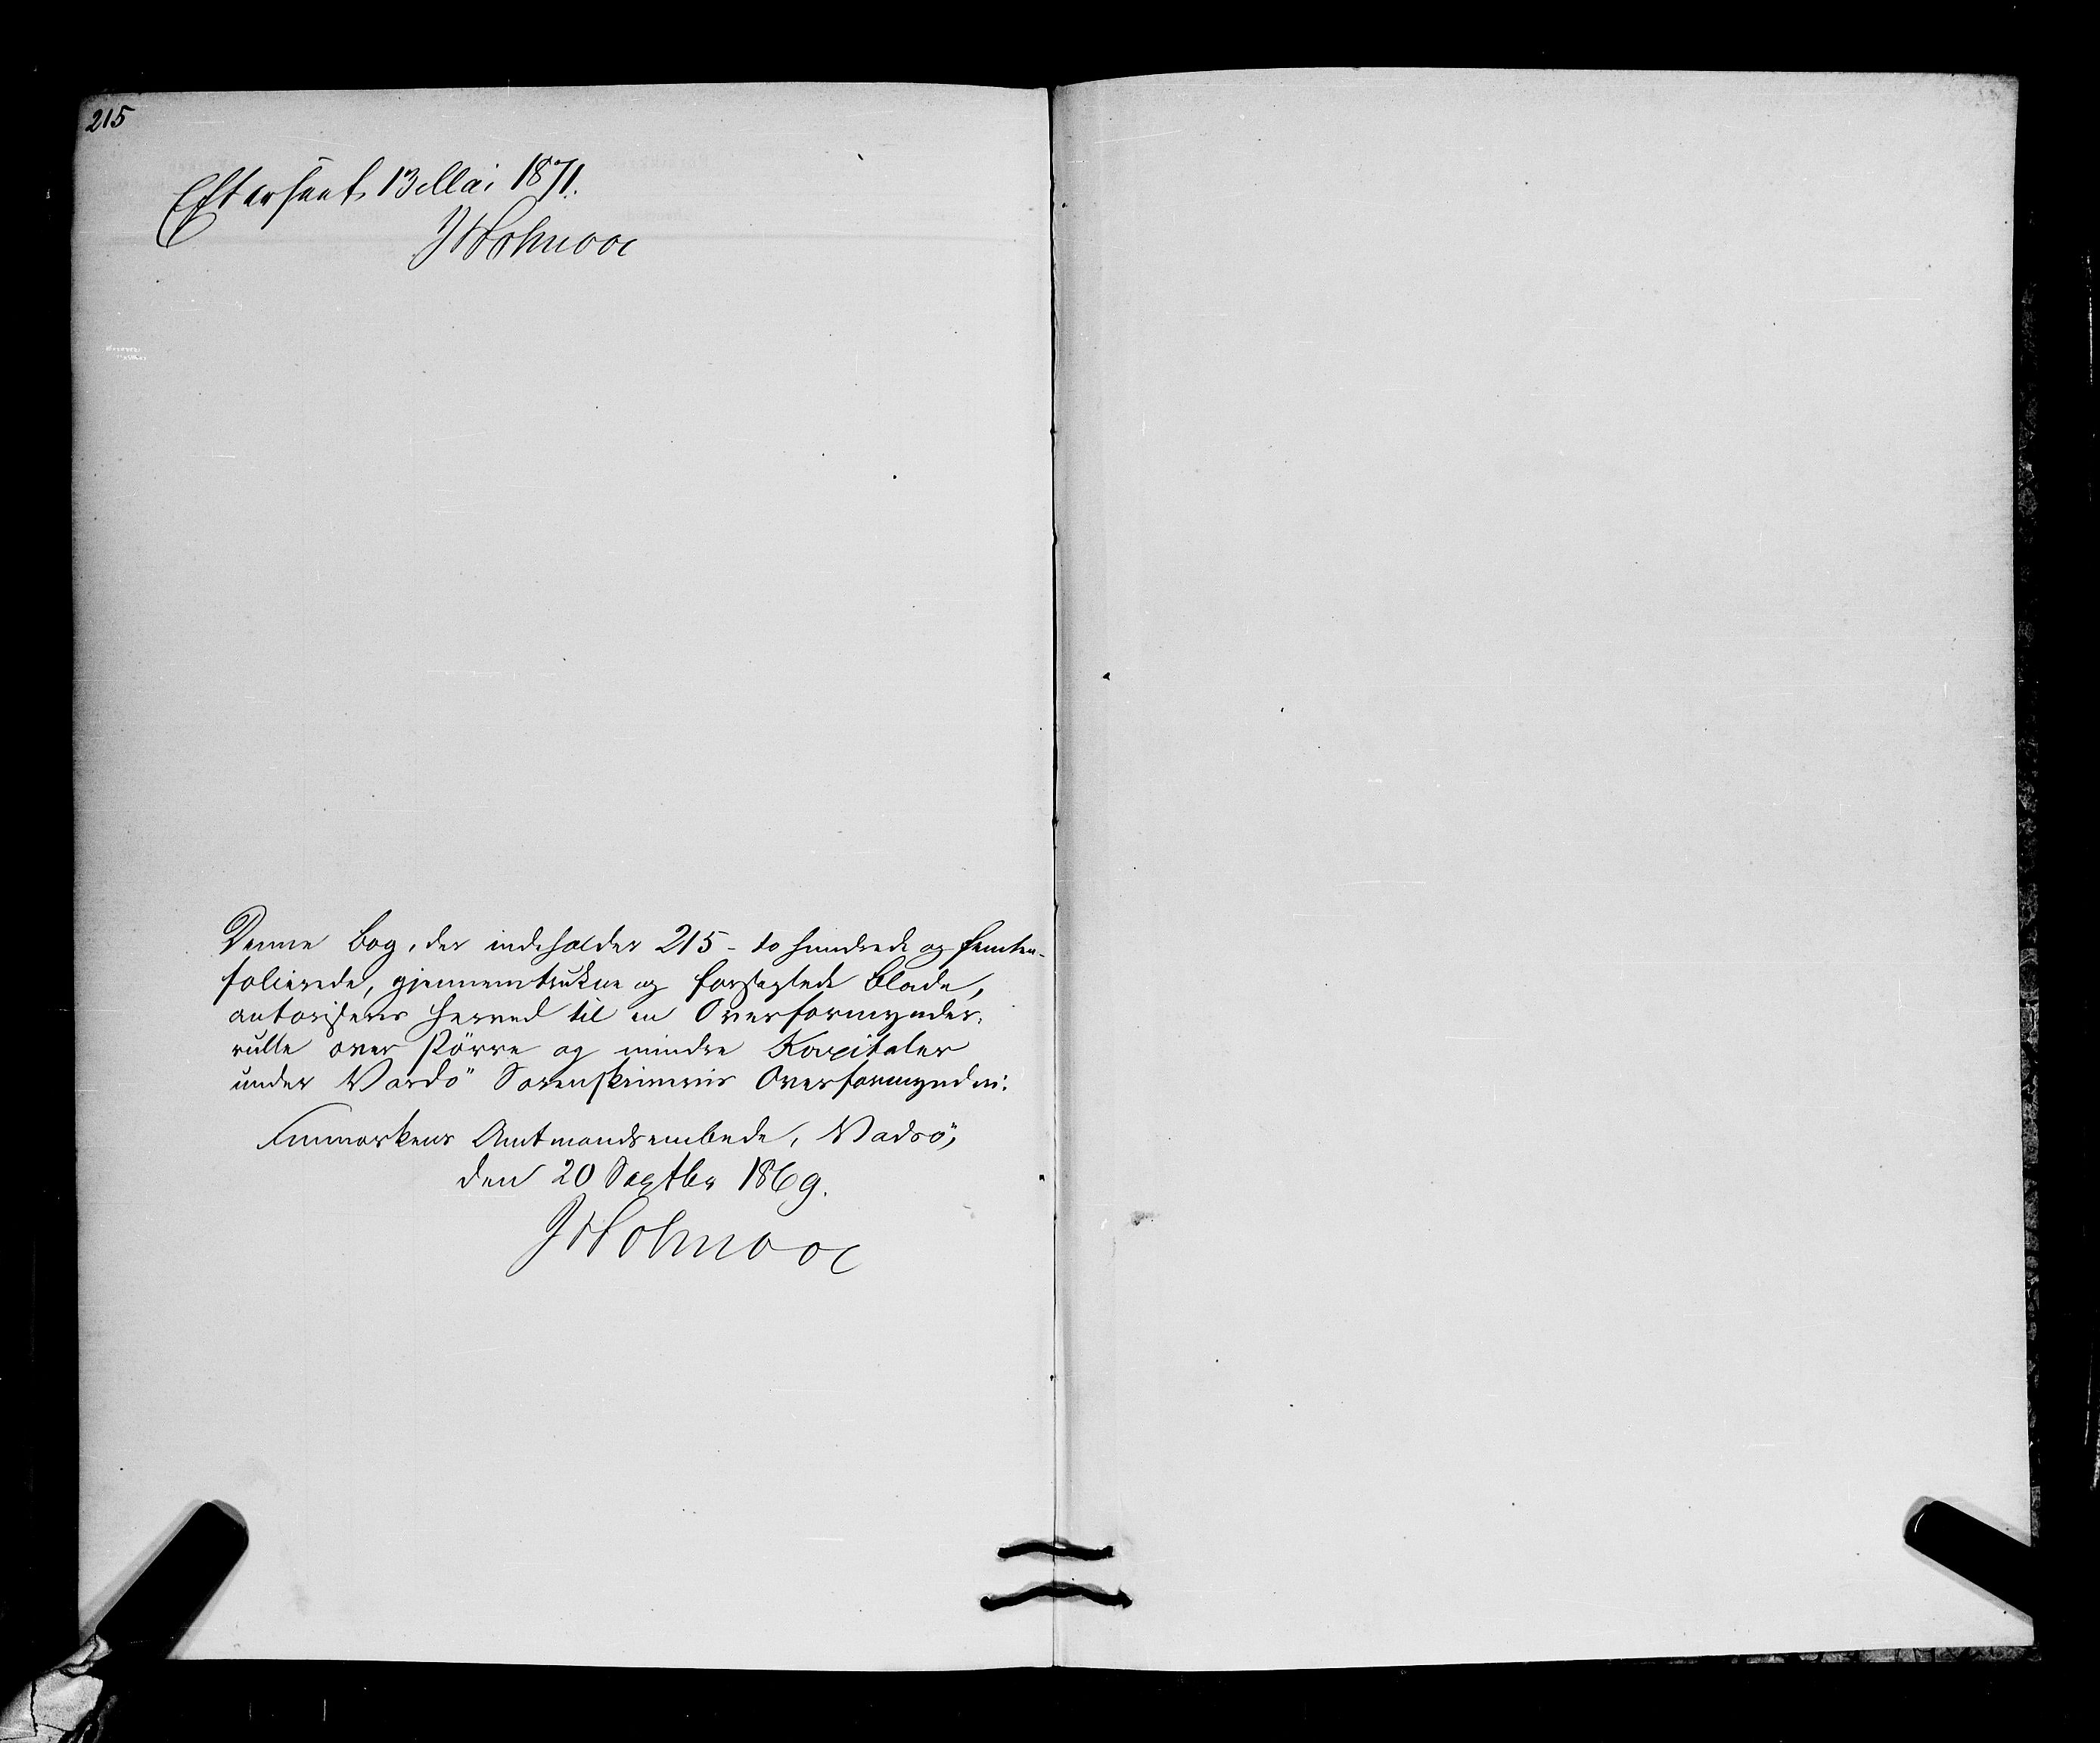 215
Efterseet 13 Mai 1871.
J Holmboe
Denne Bog, der indeholder 215 - to hundrede og femten -
folierede, gjennemtrukne og forseglede Blade,
autoriseres herved til en Overformynder-
rulle over større og mindre Kapitaler
under Vardö Sorenskriveries Overformynderi.
Finmarkens Amtmandsembede, Vadsö,
den 20 Septbr 1869.
J Holmboe